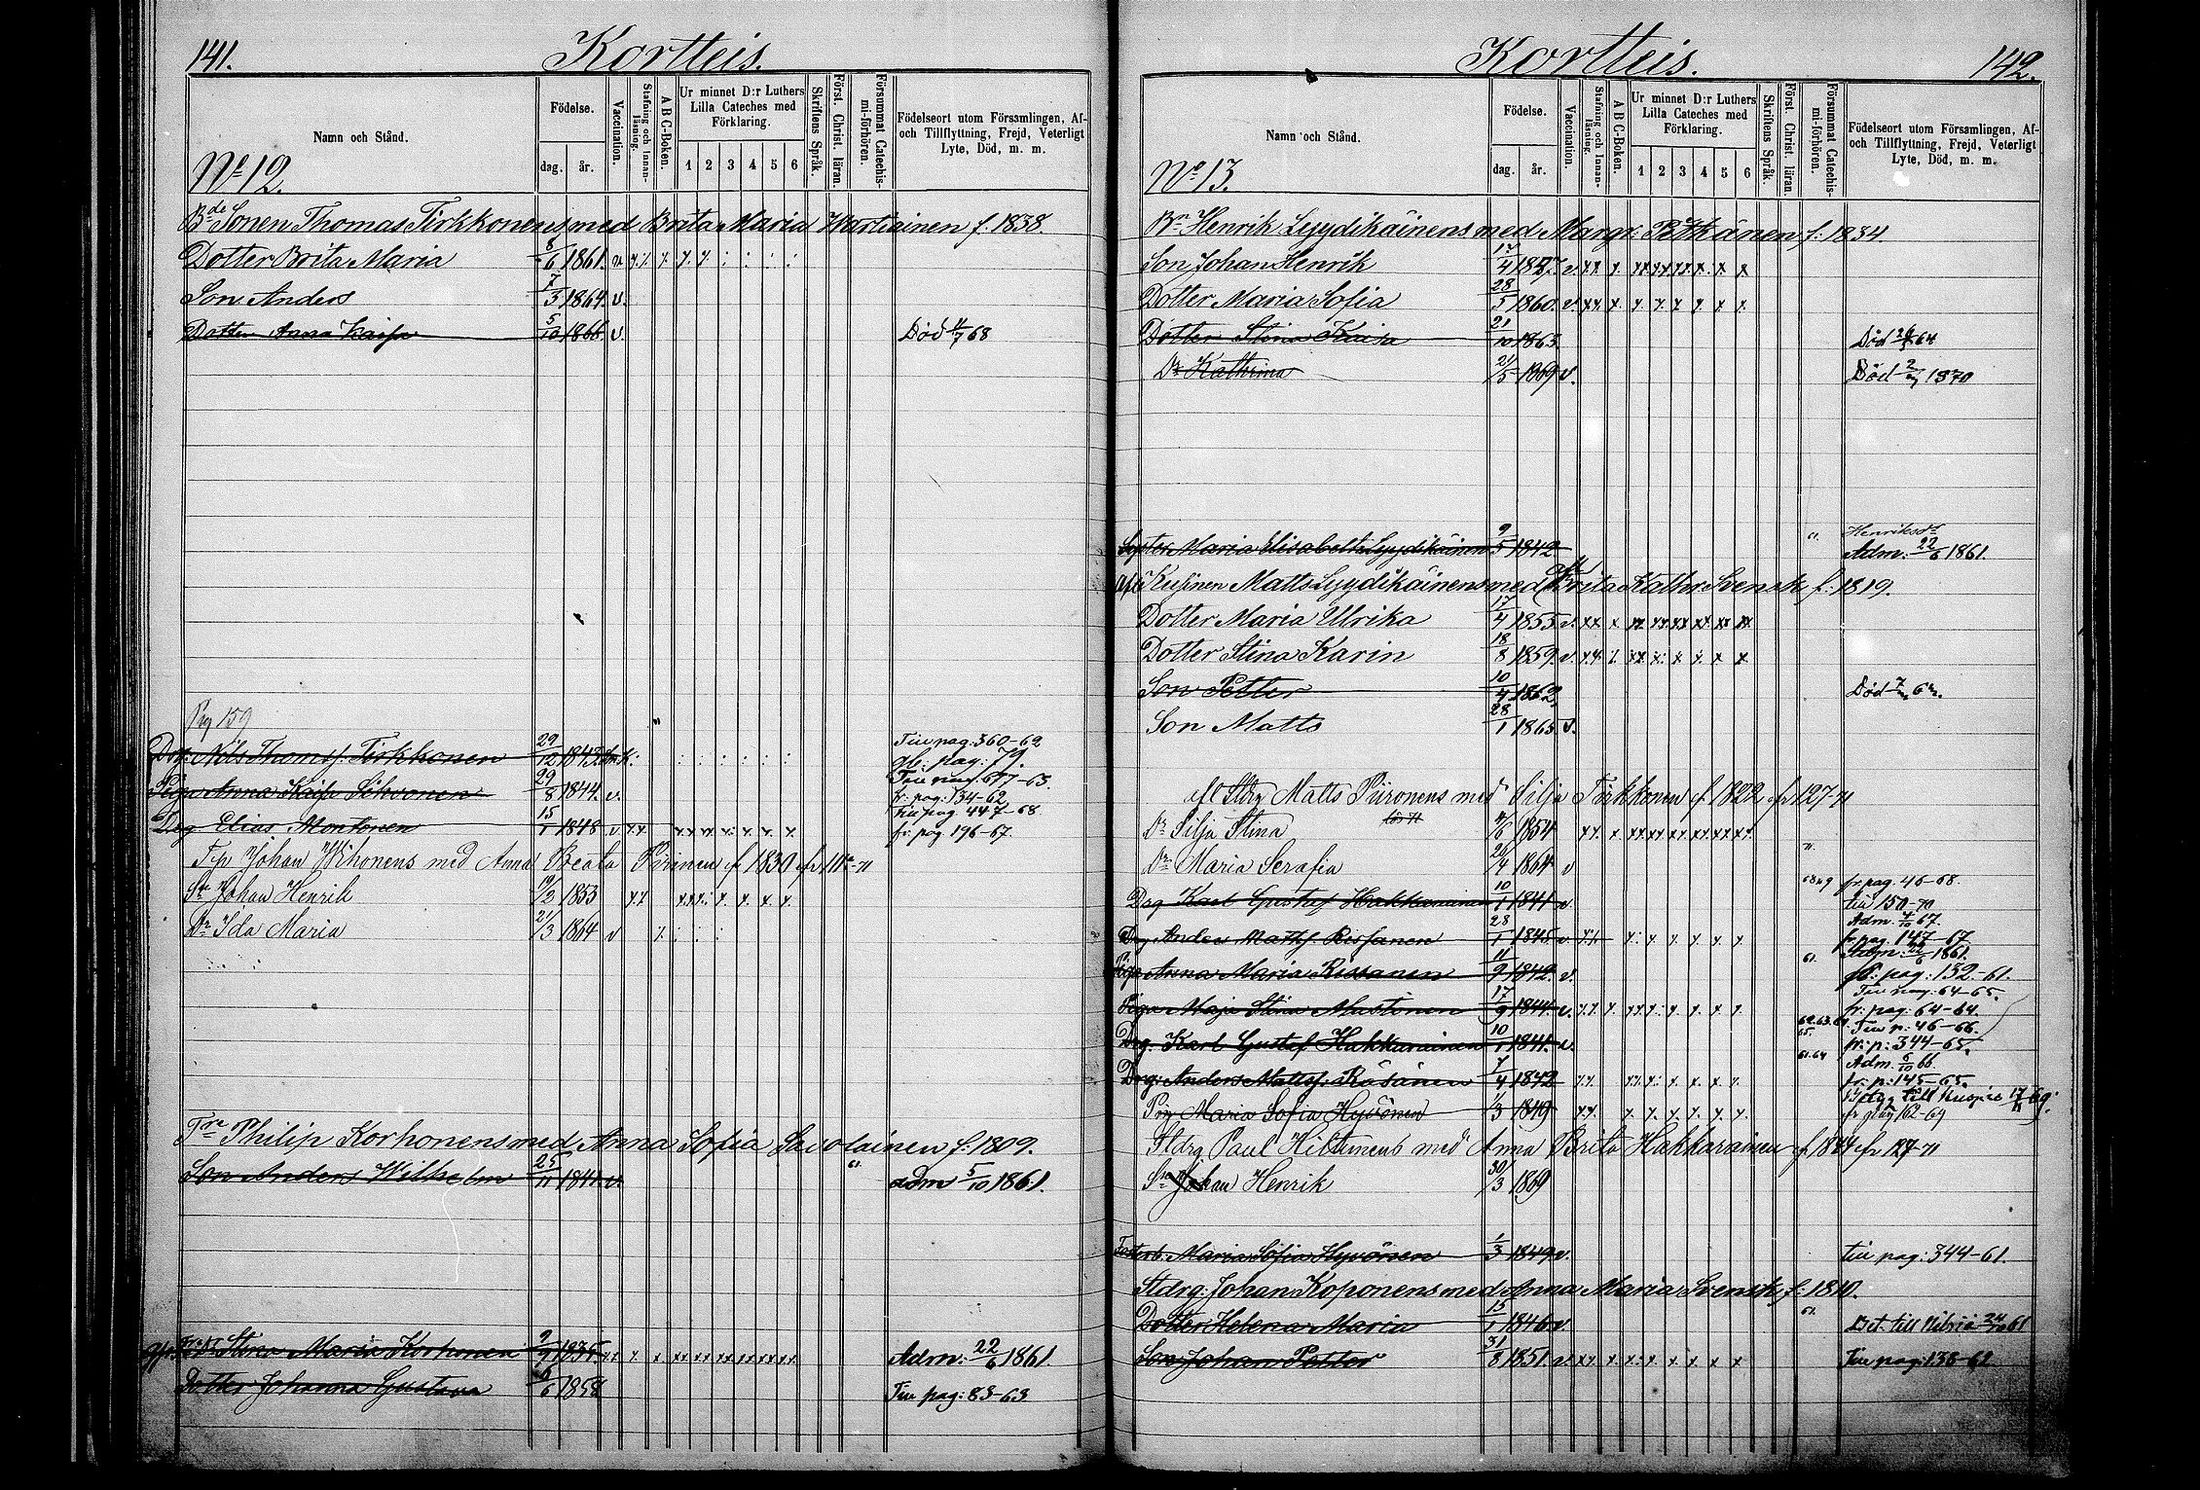 141.
Kortteis.
Namn och Stånd.
Födelse.
dag.
år.
Vaccination.
Stafning och Innanläsning.
A B C-Boken.
Ur minnet D:r Luthers
Lilla Cateches med
Förklaring.
1 2 3 4 5 6
Skriftens Språk.
Först. Christ. läran.
Försummat Catechismi-förhören.
Födelseort utom Församlingen, Af-
och Tillflyttning, Frejd, Veterligt
Lyte, Död, m. m.
No 12.
Bde Sonen Thomas Tirkkonens med Brita Maria Wartiainen f. 1838.
Dotter Brita Maria 8/6 1861. v.
Son Anders 7/3 1864. v.
Dotter Anna Kaisa 5/10 1866. v. Död 68
Pag 159
Drg. Nils Thomsf. Tirkkonen 29/12 1843. Tiu pag: 360-62
gb: pag: 79.
Piga Anna Kaisa Sihvonen 29/8 1844. v. Tiu pag 677-63.
fr. pag: 134-62
Drg Elias Montonen 15/1 1848 v Tiu pag 447-68
fr. pag 196-67.
Johan Wihonens med Anna Beata Piirinen f 1830
Sn Johan Henrik 19/2 1853
Dr Ida Maria 21/3 1864 v
Philip Korhonens med Anna Sofia Savolainen f. 1809.
Son Anders Wilhelm 25/11 1841 v. 61. adm 5/10 1861.
Stina Maria Korhonen 9/7 1835 Adm: 22/6 1861.
Dotter Johanna Gustava 6/6 1858 Tiu pag: 83-63
142.
Kortteis.
Namn och Stånd.
Födelse.
dag.
år.
Vaccination.
Stafning och Innanläsning.
A B C-Boken.
Ur minnet D:r Luthers
Lilla Cateches med
Förklaring.
1 2 3 4 5 6
Skriftens Språk.
Först. Christ. läran.
Försummat Catechismi-förhören.
Födelseort utom Församlingen, Af-
och Tillflyttning, Frejd, Veterligt
Lyte, Död, m. m.
No 13.
Bn Henrik Lyydikäinens med Margr: Pitkänen f: 1834.
Son Johan Henrik 17/4 1857. v.
Dotter Maria Sofia 28/5 1860. v.
Dotter Stina Kaisa 21/10 1863. Död 64
Dr Kathrina 21/5 1869 v. Död 1870
Henriksdr
Syster Maria Elisabeth Lyydikäinen 9/5 1842 61. Adm: 22/6 1861.
afl Kusinen Matts Lyydikäinens med Brita Kathr. Svensk f: 1819.
Dotter Maria Ulrika 17/4 1855 v.
Dotter Stina Karin 18/8 1859. v.
Son Petter 10/4 1862. Död
Son Matts 28/1 1865 v.
afl Stdrg Matts Piironens med Silja Tirkkonen f 1822 fr 127-71
Dr Silja Stina 1854
Dr Maria Serafia 26/4 1864 v
Drg Karl Gustaf Hakkarainen 10/1 1841 v. fr. pag. 46-68.
tiu 150-70
Drg Anders Mattsf. Rissanen 28/1 1845 v. Adm. 4/10 67.
fr. pag. 147-67
Piga Anna Maria Rissanen 11/9 1842. v. 61. Adm: 22/6 1861.
gb: pag: 132-61.
Piga Maja Stina Mustonen 17/9 1844 v. Tiu pag: 64-65.
fr. pag: 64-64.
Drg: Karl Gustaf Hakkarainen 10/1 1841. v. Tiu p: 46-66.
fr: p: 344-65.
Drg: Anders Mattsf: Räsänen 7/4 1842 61.64 Adm 6/10 66
fr. p: 145-65.
Pig Maria Sofia Hyvönen 1/3 1849 Betyg till Kuopio 69.
fr pag 162-69
Stdrg Paul Hiltunens med Anna Brita Hakkarainen f 1844 fr 127-71
Sn Johan Henrik 30/3 1869
Maria Sofia Hyvönen 1/3 1849 v. tiu pag: 344-61.
Stdrg: Johan Koponens med Anna Maria Svensk f: 1810.
Dotter Helena Maria 15/1 1846 v. 61. Bet. till 61
Son Johan Petter 31/8 1851. v. Tiu pag: 138-62